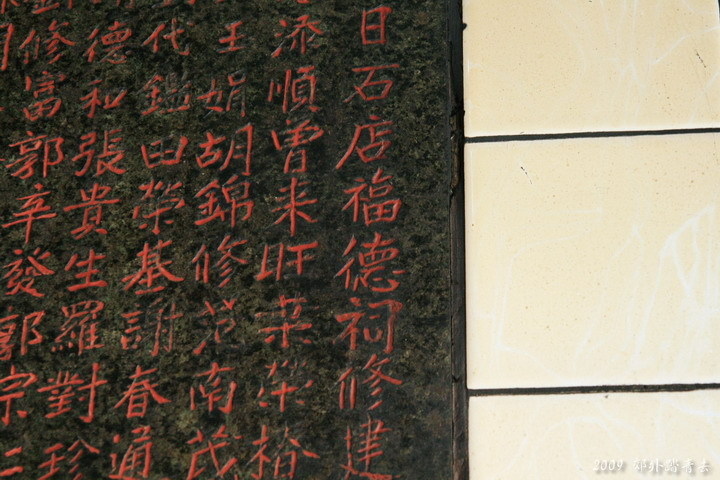 日石店福德祠修建
添順曾来旺葉榮裕
王娟胡錦修范南茂
代鑑田榮基謝春通
德和張貴生羅對珍
修富郭辛發郭宗仁
2009